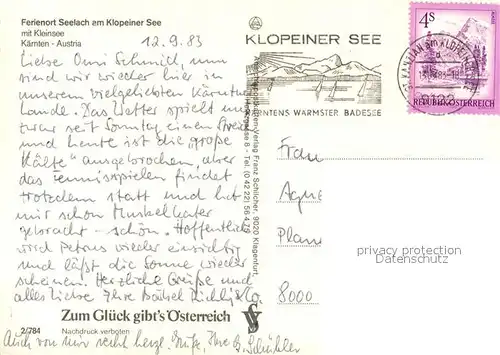 Ferienort Seelach am Klopeiner See
mit Kleinsee
Kärnten - Austria
12.9.83
Liebe Omi Schmidt, nun
sind wir wieder hier in
unserem vielgeliebten Kärntner
Lande. Das Wetter spielt uns
zwar seit Sonntag einen Streich
und heute ist die „große
Kälte" ausgebrochen, aber
das Tennisspielen findet
trotzdem statt und hat
mir schon Muskelkater
gebracht - schön. Hoffentlich
wird Petrus wieder einsichtig
und läßt die Sonne wieder
scheinen. Herzliche Grüße und
alles Liebe Ihre
Zum Glück gibt's Österreich
2/784
Nachdruck verboten
Auch von mir recht herzl. Grüße, Ihre
Verlag Franz Schilcher, 9020 Klagenfurt,
8 - Tel. (0 42 22) 56 4
KLOPEINER SEE
KÄRNTENS WÄRMSTER BADESEE
4S
REPUBLIK ÖSTERREICH
Frau
Agne
Plane
8000
privacy protection
Datenschutz